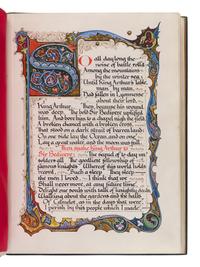 So all day long the
noise of battle roll'd
Among the mountains
by the winter sea;
Until King Arthur's table,
man by man,
Had fallen in Lyonnesse
about their lord,
King Arthur. Then, because his wound
was deep, The bold Sir Bedivere uplifted
him, And bore him to a chapel nigh the field,
A broken chancel with a broken cross,
That stood on a dark strait of barren land:
On one side lay the Ocean, and on one
Lay a great water, and the moon was full.
Then spake King Arthur to
Sir Bedivere: The sequel of to-day un
solders all The goodliest fellowship of
famous knights Whereof this world holds
record. Such a sleep They sleep—
the men I loved. I think that we
Shall never more, at any future time,
Delight our souls with talk of knightly deeds,
Walking about the gardens and the halls
Of Camelot, as in the days that were.
I perish by this people which I made—